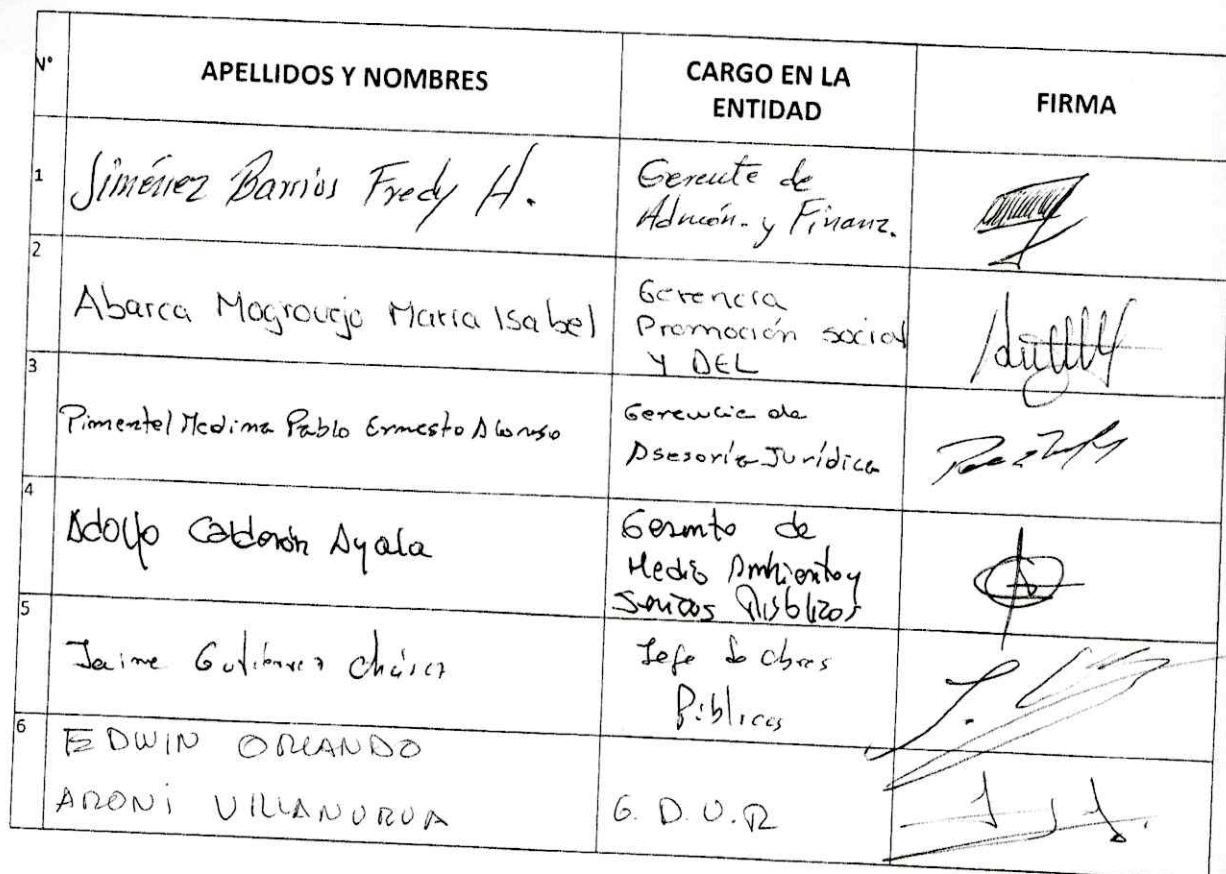 N° APELLIDOS Y NOMBRES CARGO EN LA ENTIDAD FIRMA
1 Jiménez Barrios Fredy H. Gerente de
Admón. y Finanz.
2 Abarca Mogrovejo Maria Isabel Gerencia
Promoción social
Y DEL
3 Pimentel Medina Pablo Ernesto Alonso Gerencia de
Asesoría Jurídica
4 Adolfo Calderón Ayala Gerente de
Medio Ambiente y
Servicios Públicos
5 Jaime Gutiérrez Chávez Jefe de Obras
Públicas
6 EDWIN ORLANDO
ARONI VILLANUEVA G. D. U. R